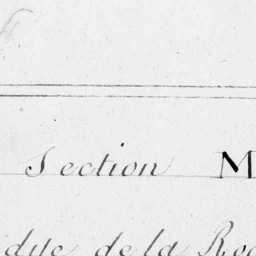 Section M
dite de la Ro